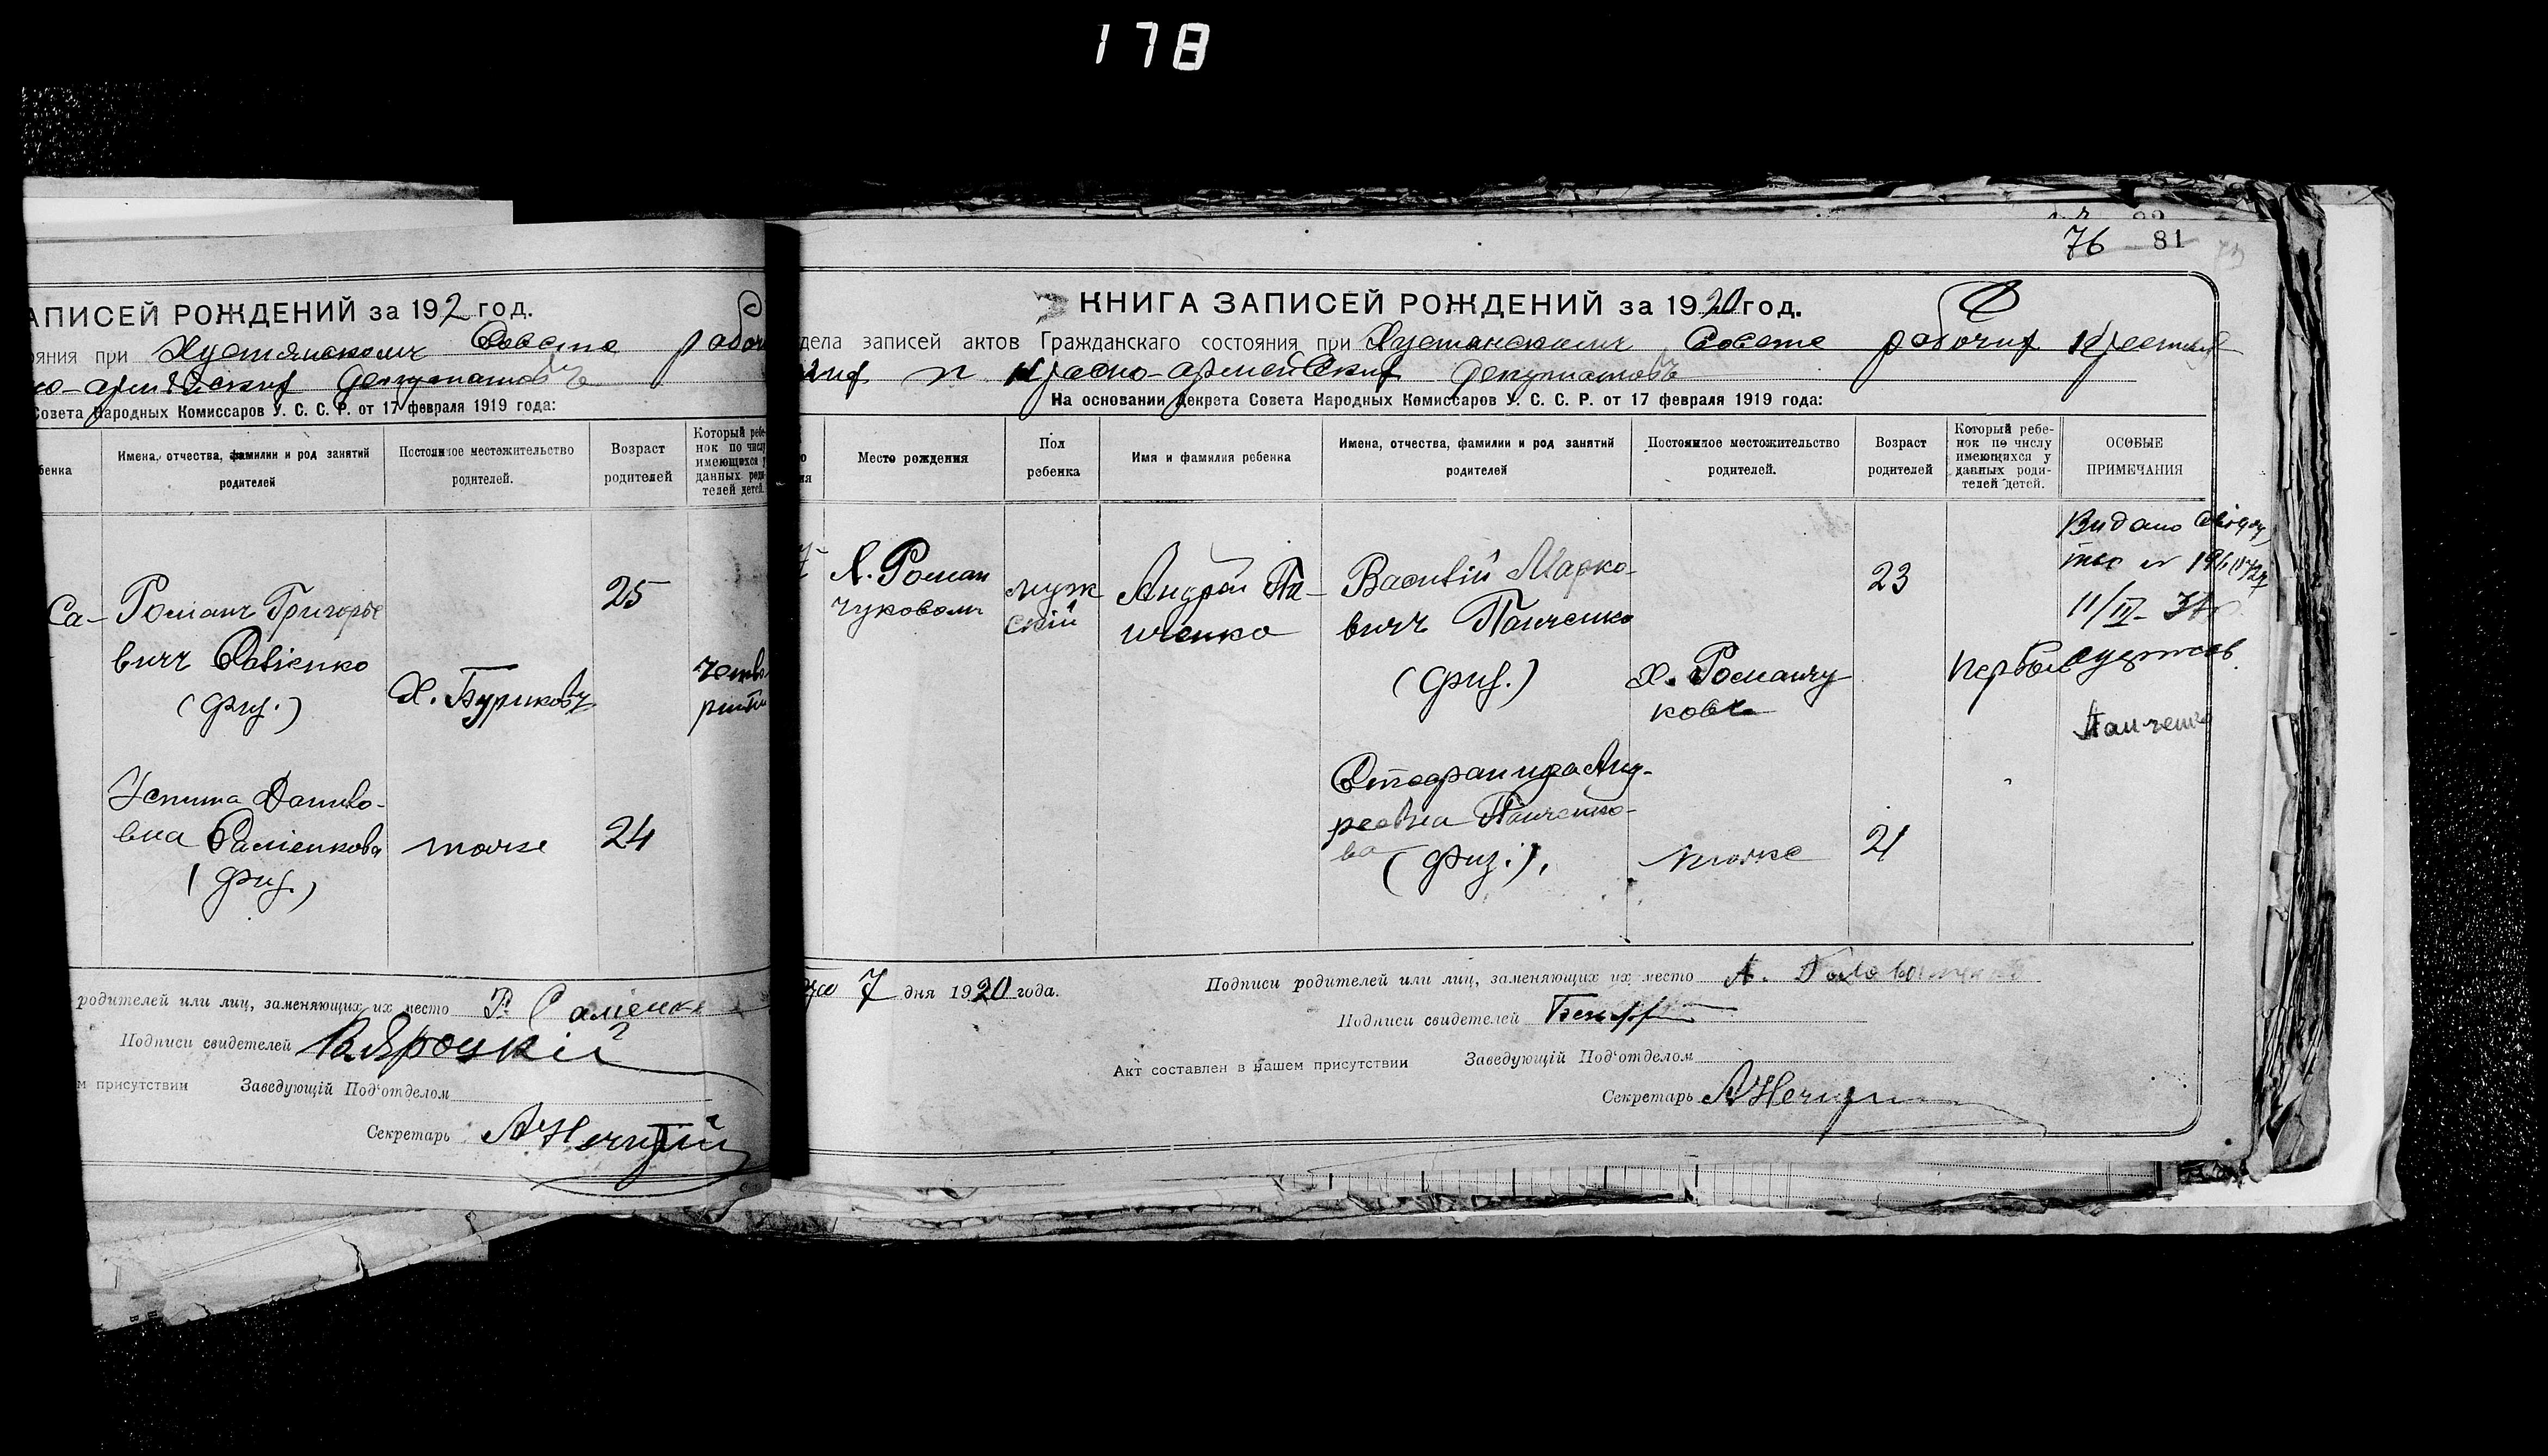 178
АПИСЕЙ РОЖДЕНИЙ за 192 год.
ояния при Хустянскомъ Совете рабоч
но-армейских Депутатовъ
Совета Народных Комиссаров У. С. С. Р. от 17 февраля 1919 года:
бенка
Имена, отчества, фамилии и род занятий
родителей
Постоянное местожительство
родителей.
Возраст
родителей
Который ребе-
нок по числу
имеющихся у
данных роди-
телей детей.
Са-
Романъ Григорье
вичъ
(физ.)
Х. Буриковъ
25
четве
Данило-
вна
(физ.)
тоже
24
родителей или лиц, заменяющих их место Р.
Подписи свидетелей В. Яроцкій
м присутствии Заведующій Под'отделом
Секретарь
76 81
КНИГА ЗАПИСЕЙ РОЖДЕНИЙ за 1920 год.
дела записей актов Гражданскаго состояния при Хустянскомъ Совете рабочих Крестьянс
ких и Красно-армейских Депутатовъ
На основании Декрета Совета Народных Комиссаров У. С. С. Р. от 17 февраля 1919 года:
Место рождения
Пол
ребенка
Имя и фамилия ребенка
Имена, отчества, фамилии и род занятий
родителей
Постоянное местожительство
родителей.
Возраст
родителей
Который ребе-
нок по числу
имеющихся у
данных роди-
телей детей.
ОСОБЫЕ
ПРИМЕЧАНИЯ
Х. Роман
чуковомъ
муж
скій
Андрей Па-
нченко
Василій Марко-
вичъ Панченко
(физ.)
Х. Романчу-
ковъ
23
первый
Анд-
реевна Панченко-
ва (физ.),
тоже
21
Видано
11/IV-37р.
Панченко
7 дня 1920 года.
Подписи родителей или лиц, заменяющих их место А.
Подписи свидетелей
Акт составлен в нашем присутствии Заведующій Под'отделом
Секретарь